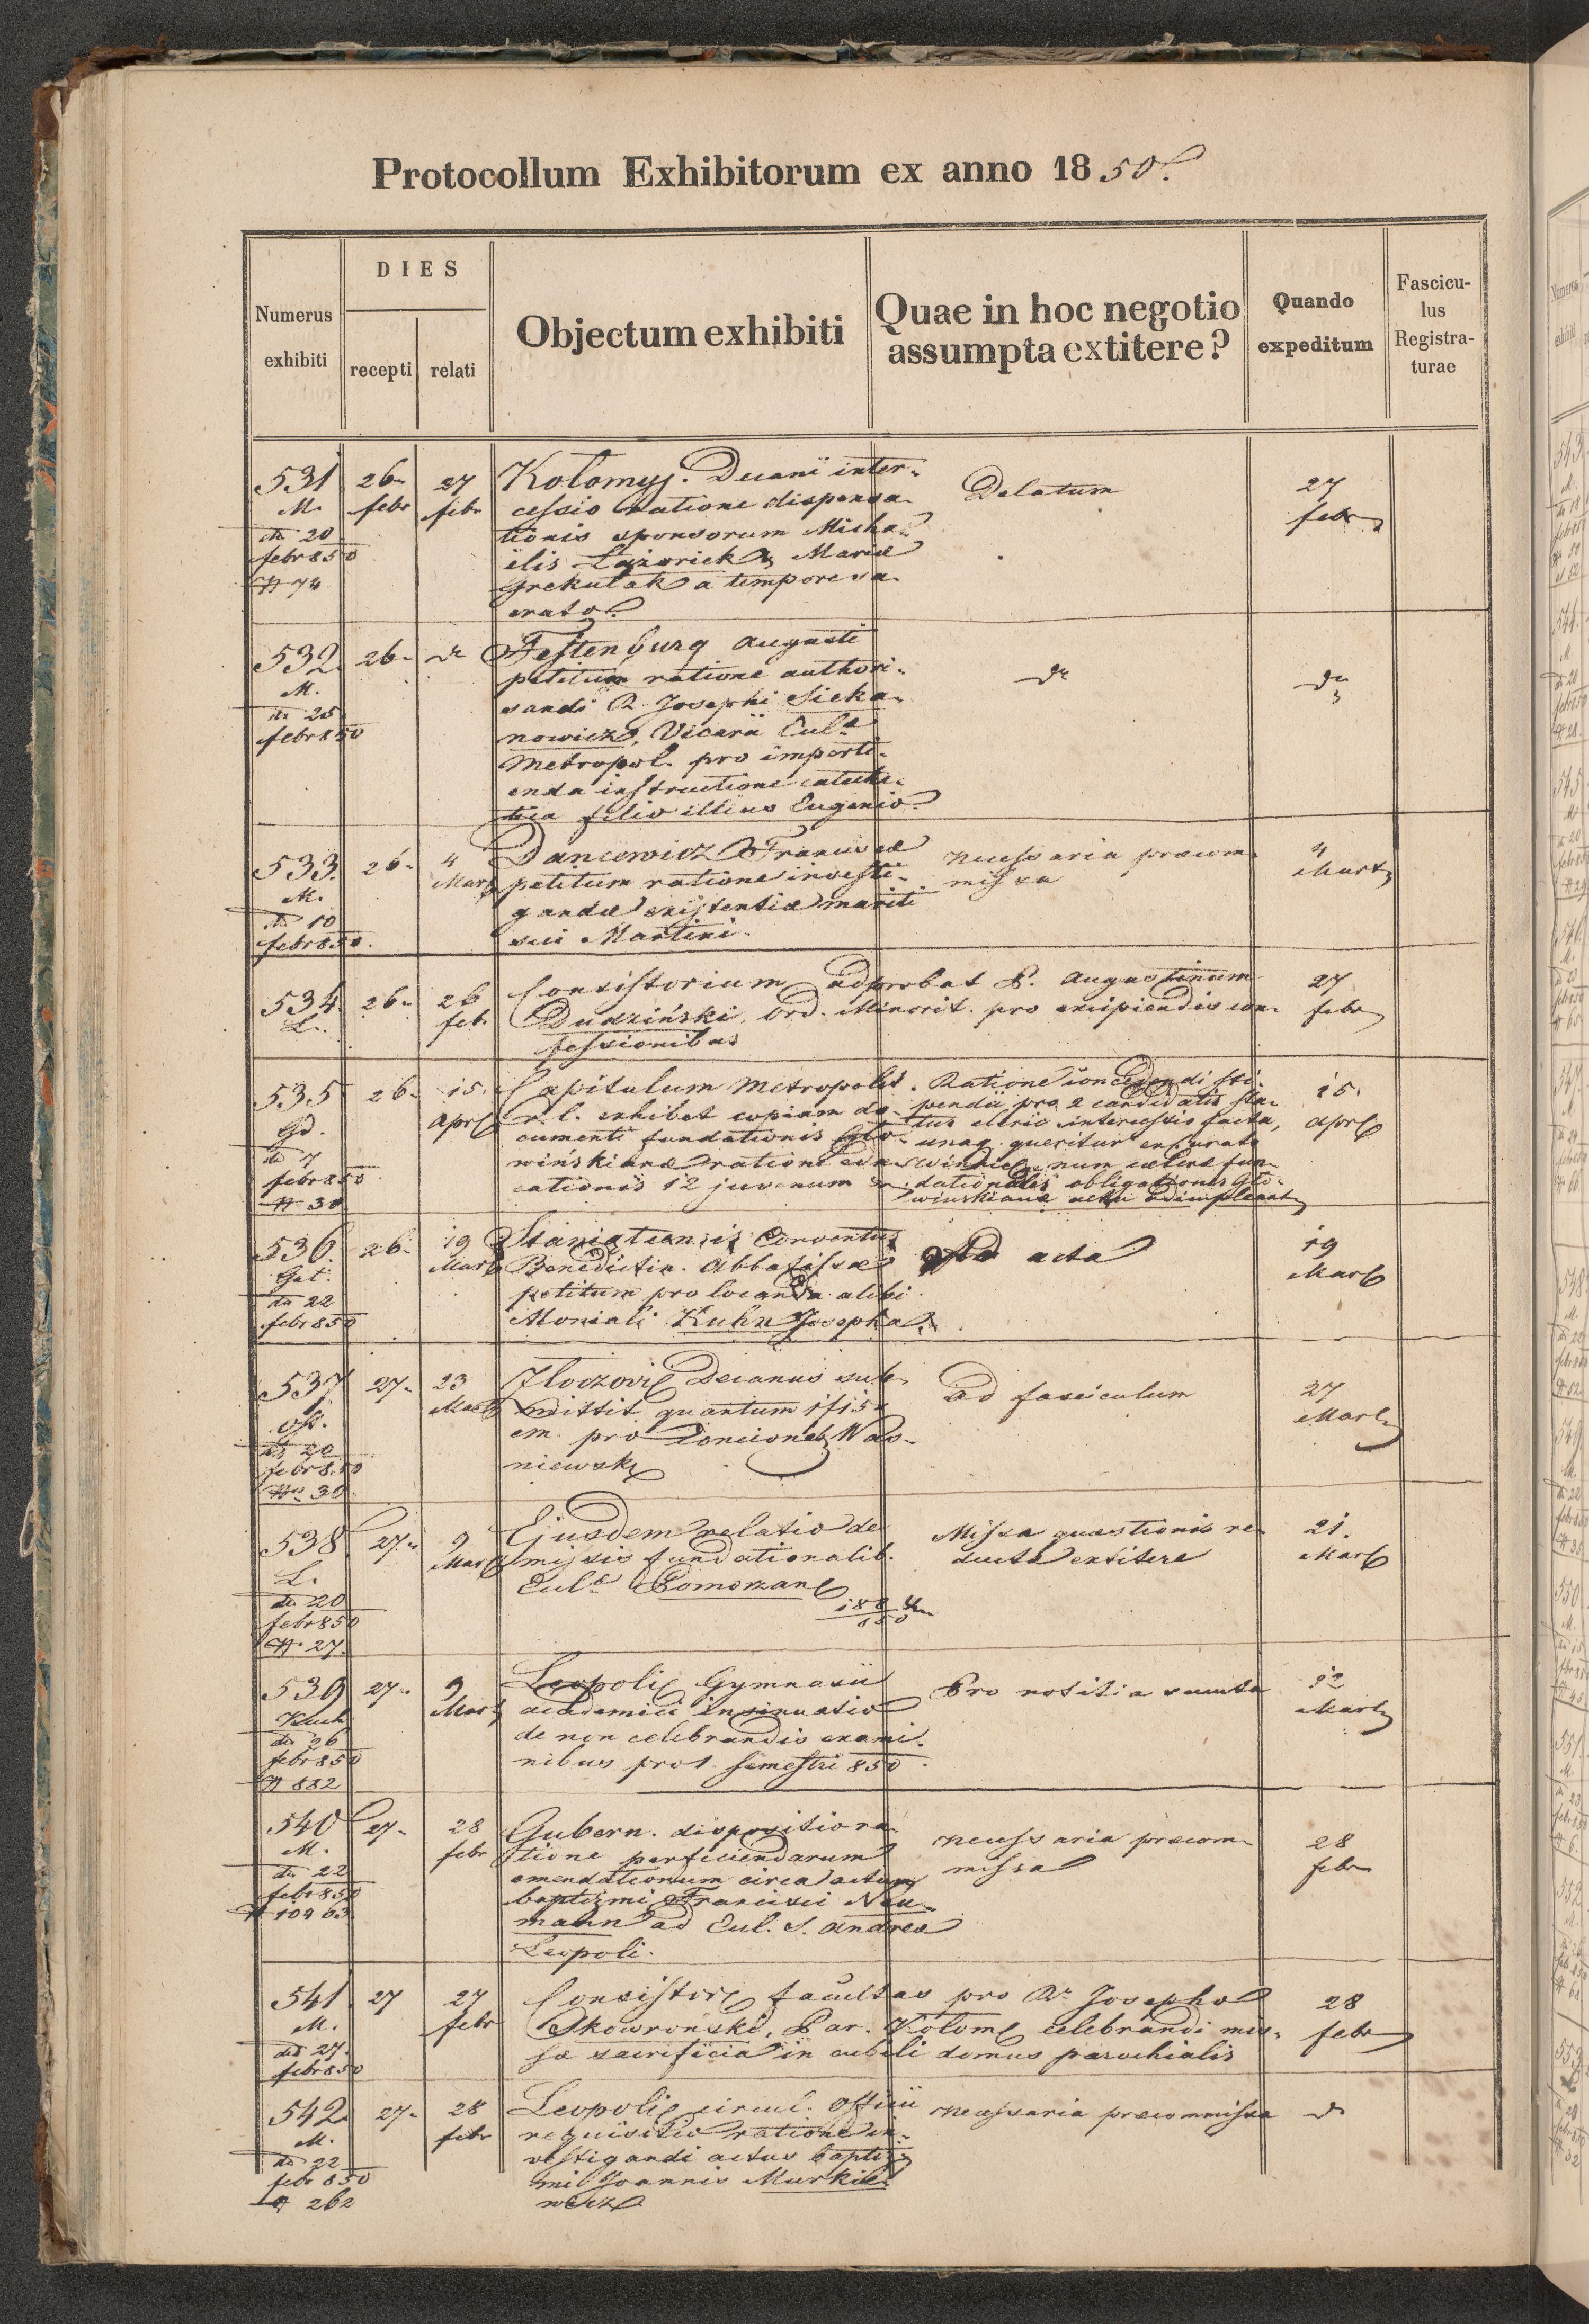 Protocollum Exhibitorum ex anno 1850.
Numerus exhibiti
DIES
recepti
relati
Objectum exhibiti
Quae in hoc negotio assumpta extitere?
Quando expeditum
Fascicu-
lus
Registra-
turae
531
M.
do 20
febr 850
N 74
26
febr
27
febr
Kołomyj. Decani inter-
cessio ratione dispensa-
tionis sponsorum Micha-
elis & Mariae
Grekulak a tempore sa-
crato.
Delatum
27
febr
532
M.
do 25
febr 850
26
do
Festenburg Augusti
petitum ratione authori-
sandi R. Josephi Sieka-
nowicz, Vicarii Eccl.
Metropol. pro imperti-
enda instructione cateche-
tica filio illius Eugenio.
do
do
533.
M.
do 10
febr 850.
26
4
Mart
Dancewicz Franciscae
petitum ratione investi-
gandae existentiae mariti
sui Martini.
necessaria praecom-
missa
4
Mart
534
L.
26
26
feb.
Consistorium adprobat P. Augustinum
Dudziński, Ord. Minorit. pro excipiendis con-
fessionibus
27
febr
535
Gd.
do 7
febr 850
N 30
26
15.
April
Capitulum Metropolit.
r. l. exhibet copiam do-
cumenti fundationis Gło-
wińskianae ratione edu-
cationis 12 juvenum
Ratione concedendi sti-
pendii pro 2 candidatis sta-
tus cleric intercessio facta,
unaq. queritur
num
fun-
dationales obligationes Gło-
wińskianae actu adimpleant
15.
April
536
Gal.
do 22
febr 850
26
19
Mart
Staniatcensis Conventus
Benedictin. Abbatissae
petitum pro locanda alibi
Moniali Kuhn Josepha.
Ad acta
19
Mart
537
do 20
febr 850
N 30
27
23
Mart
Złoczovi Decanus sub-
mittit quantum 1 f 15 x
cm. pro
Was-
niewski
ad fasciculum
27
Mart
538
L.
do 20
febr 850
N. 27.
27
9
Mart
Ejusdem relatio de
missis fundationalib.
Eccl. Pomorzan
Missa quaestionis re-
ducta extitere
21.
Mart
539
do 26
febr 850
N 882
27
9
Mart
Leopoli Gymnasii
academici insinuatio
de non celebrandis exami-
nibus pro 1. semestri 850
Pro notitia sumta
Mart
540
M.
do 22
febr 850
N 10463
27
28
febr
Gubern. dispositio ra-
tione perficiendarum
emendationum circa actum
baptizmi Francisci Neu-
mann ad Eccl. S. Andreae
Leopoli.
necessaria praecom-
missa
28
febr
541
M.
do 27
febr 850
27
27
febr
Consistor facultas pro R. Josepho
Skowroński, Par. Kołom celebrandi mis-
sae sacrificia in cubili domus parochialis
28
febr
542
M.
do 22
febr 850
N 262
27
28
febr
Leopoli circul. Officii
requisitio ratione in-
vestigandi actus baptiz-
mi Joannis Murkie-
wicz
necessaria praecommissa
do